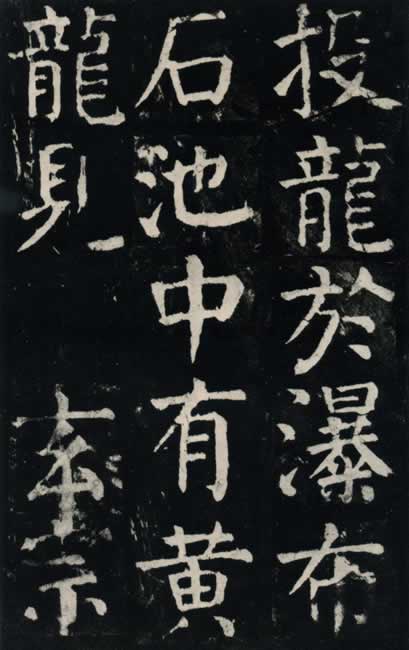 投龍於瀑布
石池中有黃
龍見 玄宗